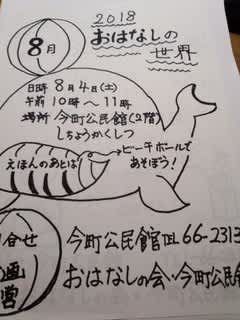 2018
おはなしの
世界
8月
日時 8月4日(土)
午前 10時〜11時
場所 今町公民館(2階)
しちょうかくしつ
えほんのあとは!
ビーチボールで
あそぼう!
合せ
今町公民館TEL 66-2313
画
営
おはなしの会・今町公民館